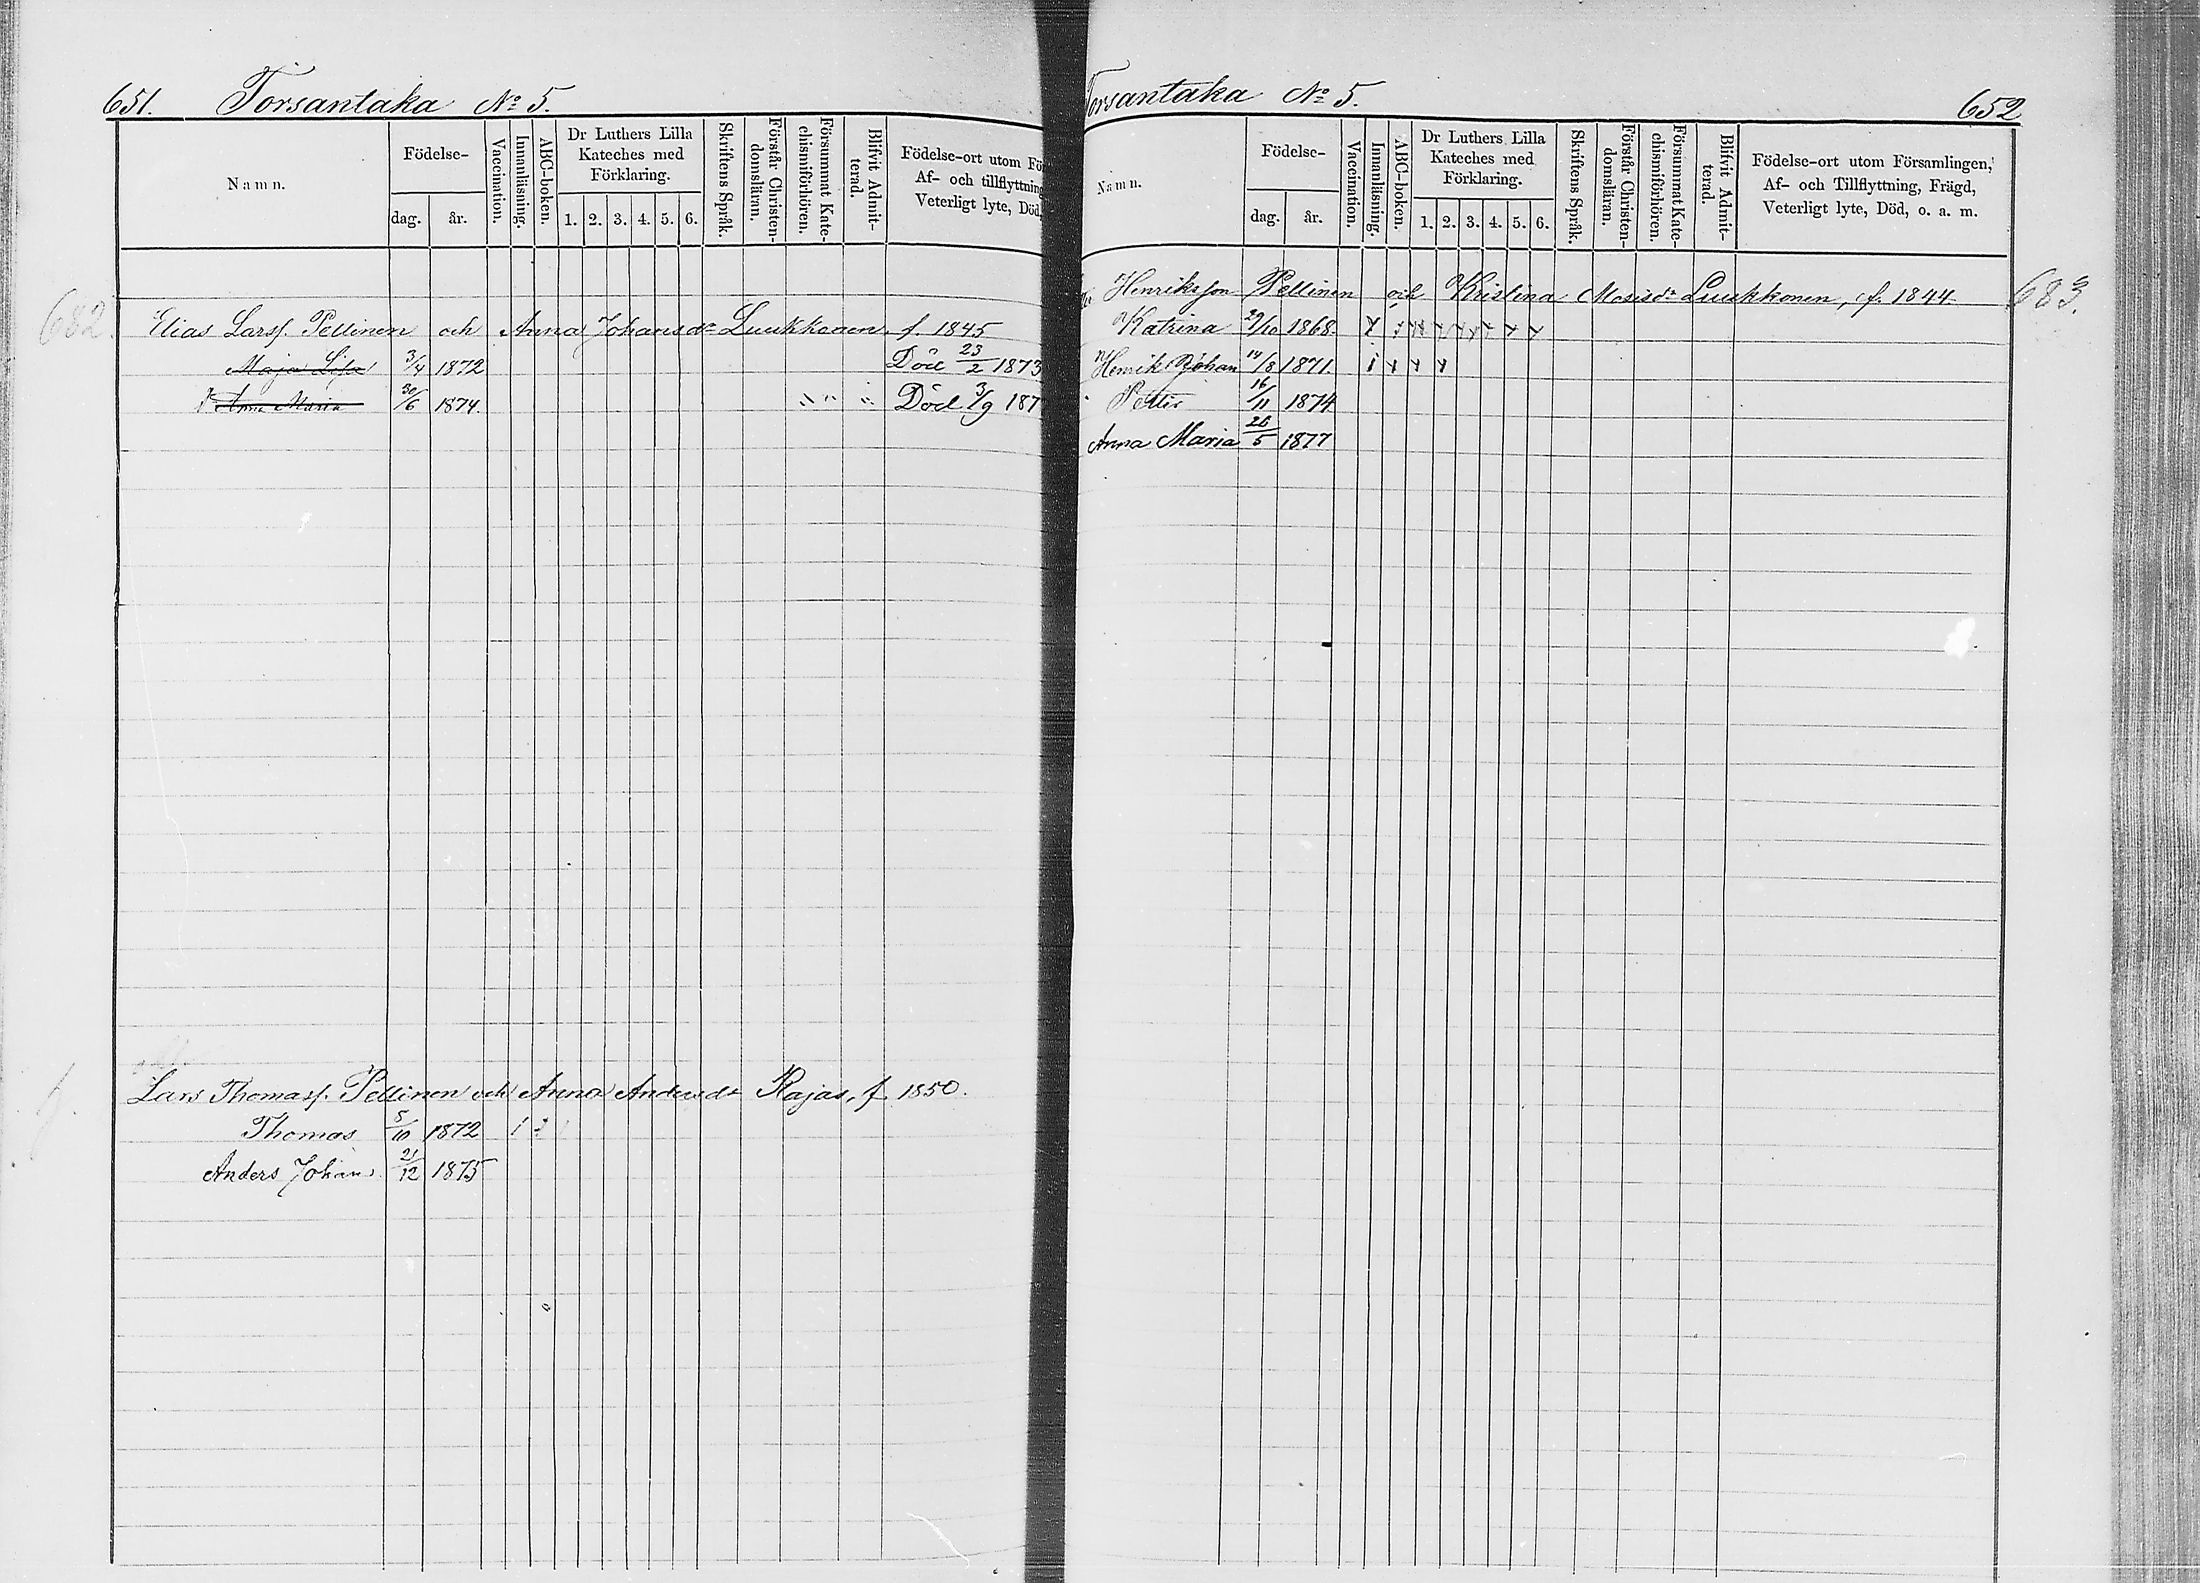 651. Torsantaka No 5.
Namn.
Födelse-
dag. år.
Vaccination.
Innanläsning.
ABC-boken.
Dr Luthers Lilla
Kateches med
Förklaring.
1. 2. 3. 4. 5. 6.
Skriftens Språk.
Förstår Christen-
domsläran.
Försummat Kate-
chismiförhören.
Blifvit Admit-
terad.
Födelse-ort utom Fö
Af- och tillflyttning
Veterligt lyte, Död,
682.
Elias Larsf. Pellinen och Anna Johansdr Luukkonen, f. 1845
Maja Lisa 3/4 1872 Död 23/2 1873
Anna Maria 30/6 1874. Död 3/9 187
Lars Thomasf. Pellinen och Anna Andersdr Rajas, f. 1850.
Thomas 5/10 1872
Anders Johan 21/12 1875
Torsantaka No 5. 652
Namn.
Födelse-
dag. år.
Vaccination.
Innanläsning.
ABC-boken.
Dr Luthers Lilla
Kateches med
Förklaring.
1. 2. 3. 4. 5. 6.
Skriftens Språk.
Förstår Christen-
domsläran.
Försummat Kate-
chismiförhören.
Blifvit Admit-
terad.
Födelse-ort utom Församlingen,
Af- och Tillflyttning, Frägd,
Veterligt lyte, Död, o. a. m.
Henriksson Pellinen och Kristina Mosisdr Luukkonen, f. 1844 683.
Katrina 29/10 1868.
Henrik Johan 14/8 1871.
Petter 16/11 1874
Anna Maria 26/5 1877